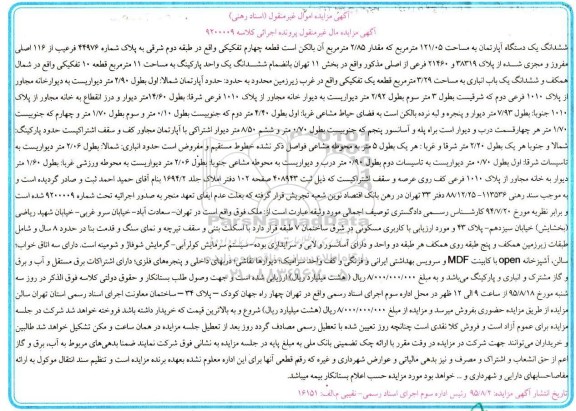 آگهی مزایده اموال غیرمنقول (اسناد رهنی)
آگهی مزایده مال غیرمنقول پرونده اجرائی کلاسه ۹۲۰۰۰۰۹
ششدانگ یک دستگاه آپارتمان به مساحت ۱۲۱/۰۵ مترمربع که مقدار ۲/۸۵ مترمربع آن بالکن است قطعه چهارم تفکیکی واقع در طبقه دوم شرقی به پلاک شماره ۴۴۹۷۶ فرعی از ۱۱۶ اصلی
مفروز و مجزی شده از پلاک ۳۸۳۱۹ و ۲۱۴۶۰ فرعی از اصلی مذکور واقع در بخش ۱۱ تهران بانضمام ششدانگ یک واحد پارکینگ به مساحت ۱۱ مترمربع قطعه ۱۰ تفکیکی واقع در شمال
همکف و ششدانگ یک باب انباری به مساحت ۳/۲۹ مترمربع قطعه یک تفکیکی واقع در غرب زیرزمین محدود به حدود: حدود آپارتمان شمالا: اول بطول ۲/۹۰ متر دیواریست به دیوارخانه مجاور
از پلاک ۱۰۱۰ فرعی دوم که شرقیست بطول ۳ متر سوم بطول ۲/۹۲ متر دیواریست به دیوار خانه مجاور از پلاک ۱۰۱۰ فرعی شرقا: بطول ۱۴/۶۰ متر دیوار و درز انقطاع به خانه مجاور از پلاک
۱۰۱۰ جنوبا: بطول ۷/۹۳ متر دیوار و پنجره و لبه نرده بالکن است به فضای حیاط مشاعی غربا: اول بطول ۴/۴۰ متر دوم که جنوبیست بطول ۰/۱۰ متر و سوم بطول ۱/۷۰ متر و چهارم که جنوبیست
۱/۷۰ متر هر چهارقسمت درب و دیوار است براه پله و آسانسور پنجم که جنوبیست بطول ۰/۷۰ متر و ششم ۸/۵۰ متر دیوار اشتراکی با آپارتمان مجاور کف و سقف اشتراکیست حدود پارکینگ:
شمالا و جنوبا هر یک بطول ۲/۲۰ متر شرقا و غربا: هر یک بطول ۵ متر به محوطه مشاعی فواصل ذکر نشده خطوط مستقیم و مفروض است حدود انباری: شمالا: بطول ۲/۰۶ متر دیواریست به
تاسیسات شرقا: اول بطول ۰/۷۰ متر دیواریست به تاسیسات دوم بطول ۰/۹۰ متر درب و دیواریست به محوطه مشاعی جنوبا: بطول ۲/۰۶ متر دیواریست به محوطه ورزشی غربا: بطول ۱/۶۰ متر
دیوار به خانه مجاور از پلاک ۱۰۱۰ فرعی کف روی عرصه و سقف اشتراکیست که ذیل ثبت ۴۰۸۹۴۳ صفحه ۱۰۲ دفتر املاک جلد ۱۶۹۴/۲ بنام آقای حمید احمد ثبت و صادر گردیده است و
به موجب سند رهنی ۱۱۳۵۳۶-۸۸/۱۲/۲۵ دفتر ۳۳ تهران در رهن بانک اقتصاد نوین شعبه تجریش قرار گرفته که بعلت عدم ایفای تعهد منجر به صدور اجرائیه تحت شماره ۹۲۰۰۰۰۹ شده است
و برابر نظریه مورخ ۹۴/۷/۲۰ کارشناس رسمی دادگستری توصیف اجمالی مورد وثیقه عبارت است از: ملک فوق واقع است در تهران-سعادت آباد- خیابان سرو غربی- خیابان شهید ریاضی
(بخشایش) خیابان سیزدهم- پلاک ۴۳ و مورد ارزیابی با کاربری مسکونی در شرق ساختمان ۷ طبقه قرار دارد با اسکلت بتنی و سقف تیرچه و نمای سنگ و قدمت بنا در حدود ۸ سال و شامل
طبقات زیرزمین همکف و پنج طبقه روی همکف هر طبقه دو واحد و دارای آسانسور و لابی و سرایداری بوده- سیستم سرمایش کولرآبی- گرمایش شوفاژ و شومینه است. دارای سه اتاق خواب؛
سالن، آشپزخانه open با کابینت MDF و سرویس بهداشتی ایرانی و فرنگی و کف واحد سرامیک، دیوارها نقاشی، دربهای داخلی و پنجره‌های فلزی؛ دارای اشتراکات برق مستقل و آب و برق
و گاز مشترک و انباری و پارکینگ می‌باشد و به مبلغ ۸/۰۰۰/۰۰۰/۰۰۰ ریال (هشت میلیارد ریال) ارزیابی شده است و جهت وصول طلب بستانکار و حقوق دولتی کلاسه فوق الذکر در روز سه
شنبه مورخ ۹۵/۸/۱۸ از ساعت ۹ الی ۱۲ ظهر در محل اداره سوم اجرای اسناد رسمی واقع در تهران چهار راه جهان کودک – پلاک ۳۴ – ساختمان معاونت اجرای اسناد رسمی استان تهران سالن
مزایده از طریق مزایده حضوری بفروش میرسد و مزایده از مبلغ ۸/۰۰۰/۰۰۰/۰۰۰ ریال (هشت میلیارد ریال) شروع و به بالاترین قیمت که خریدار داشته باشد فروخته خواهد شد شرکت در جلسه
مزایده برای عموم آزاد است و فروش کلا نقدی است چنانچه روز تعیین شده با تعطیل رسمی مصادف گردد روز بعد از تعطیل جلسه مزایده در همان ساعت و مکان تشکیل خواهد شد طالبین
و خریداران می‌توانند جهت شرکت در مزایده در وقت مقرر با ارائه چک تضمینی بانک ملی به مبلغ پایه در جلسه مزایده به نشانی فوق شرکت نمایند ضمنا بدهی‌های مربوط به آب، برق و گاز
اعم از حق انشعاب و اشتراک و مصرف و نیز بدهی مالیاتی و عوارض شهرداری و غیره که رقم قطعی آنها برای این اداره معلوم نشده بعهده برنده مزایده است و تنظیم سند انتقال موکول به ارائه
مفاصاحسابهای دارایی و شهرداری و ... خواهد بود مورد مزایده حسب اعلام بستانکار بیمه میباشد.
تاریخ انتشار آگهی مزایده: ۹۵/۸/۲ رئیس اداره سوم اجرای اسناد رسمی- نقیبی م الف: ۱۶۱۵۱